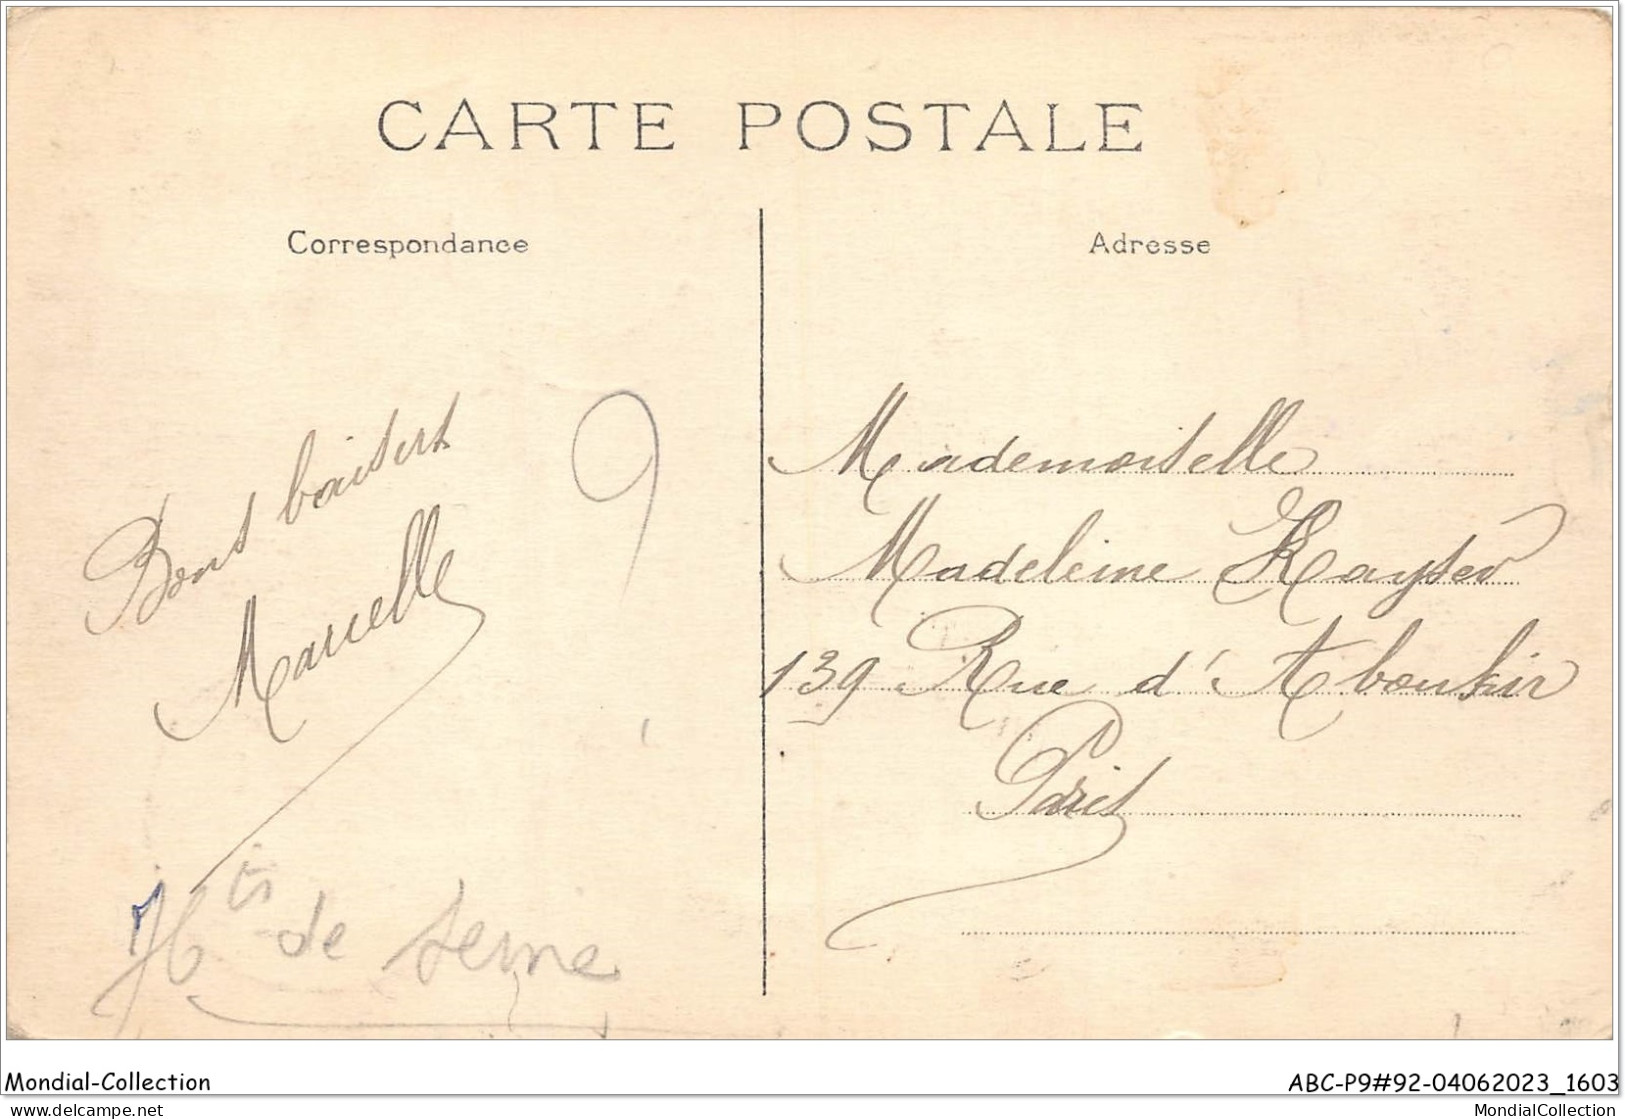 CARTE POSTALE
Correspondance
Adresse
Bons baisers
Marcelle
Mademoiselle
Madeleine Kayser
139 Rue d'Aboukir
Paris
Hts de Seine
Mondial-Collection
ABC-P9#92-04062023_1603
www.delcampe.net
MondialCollection